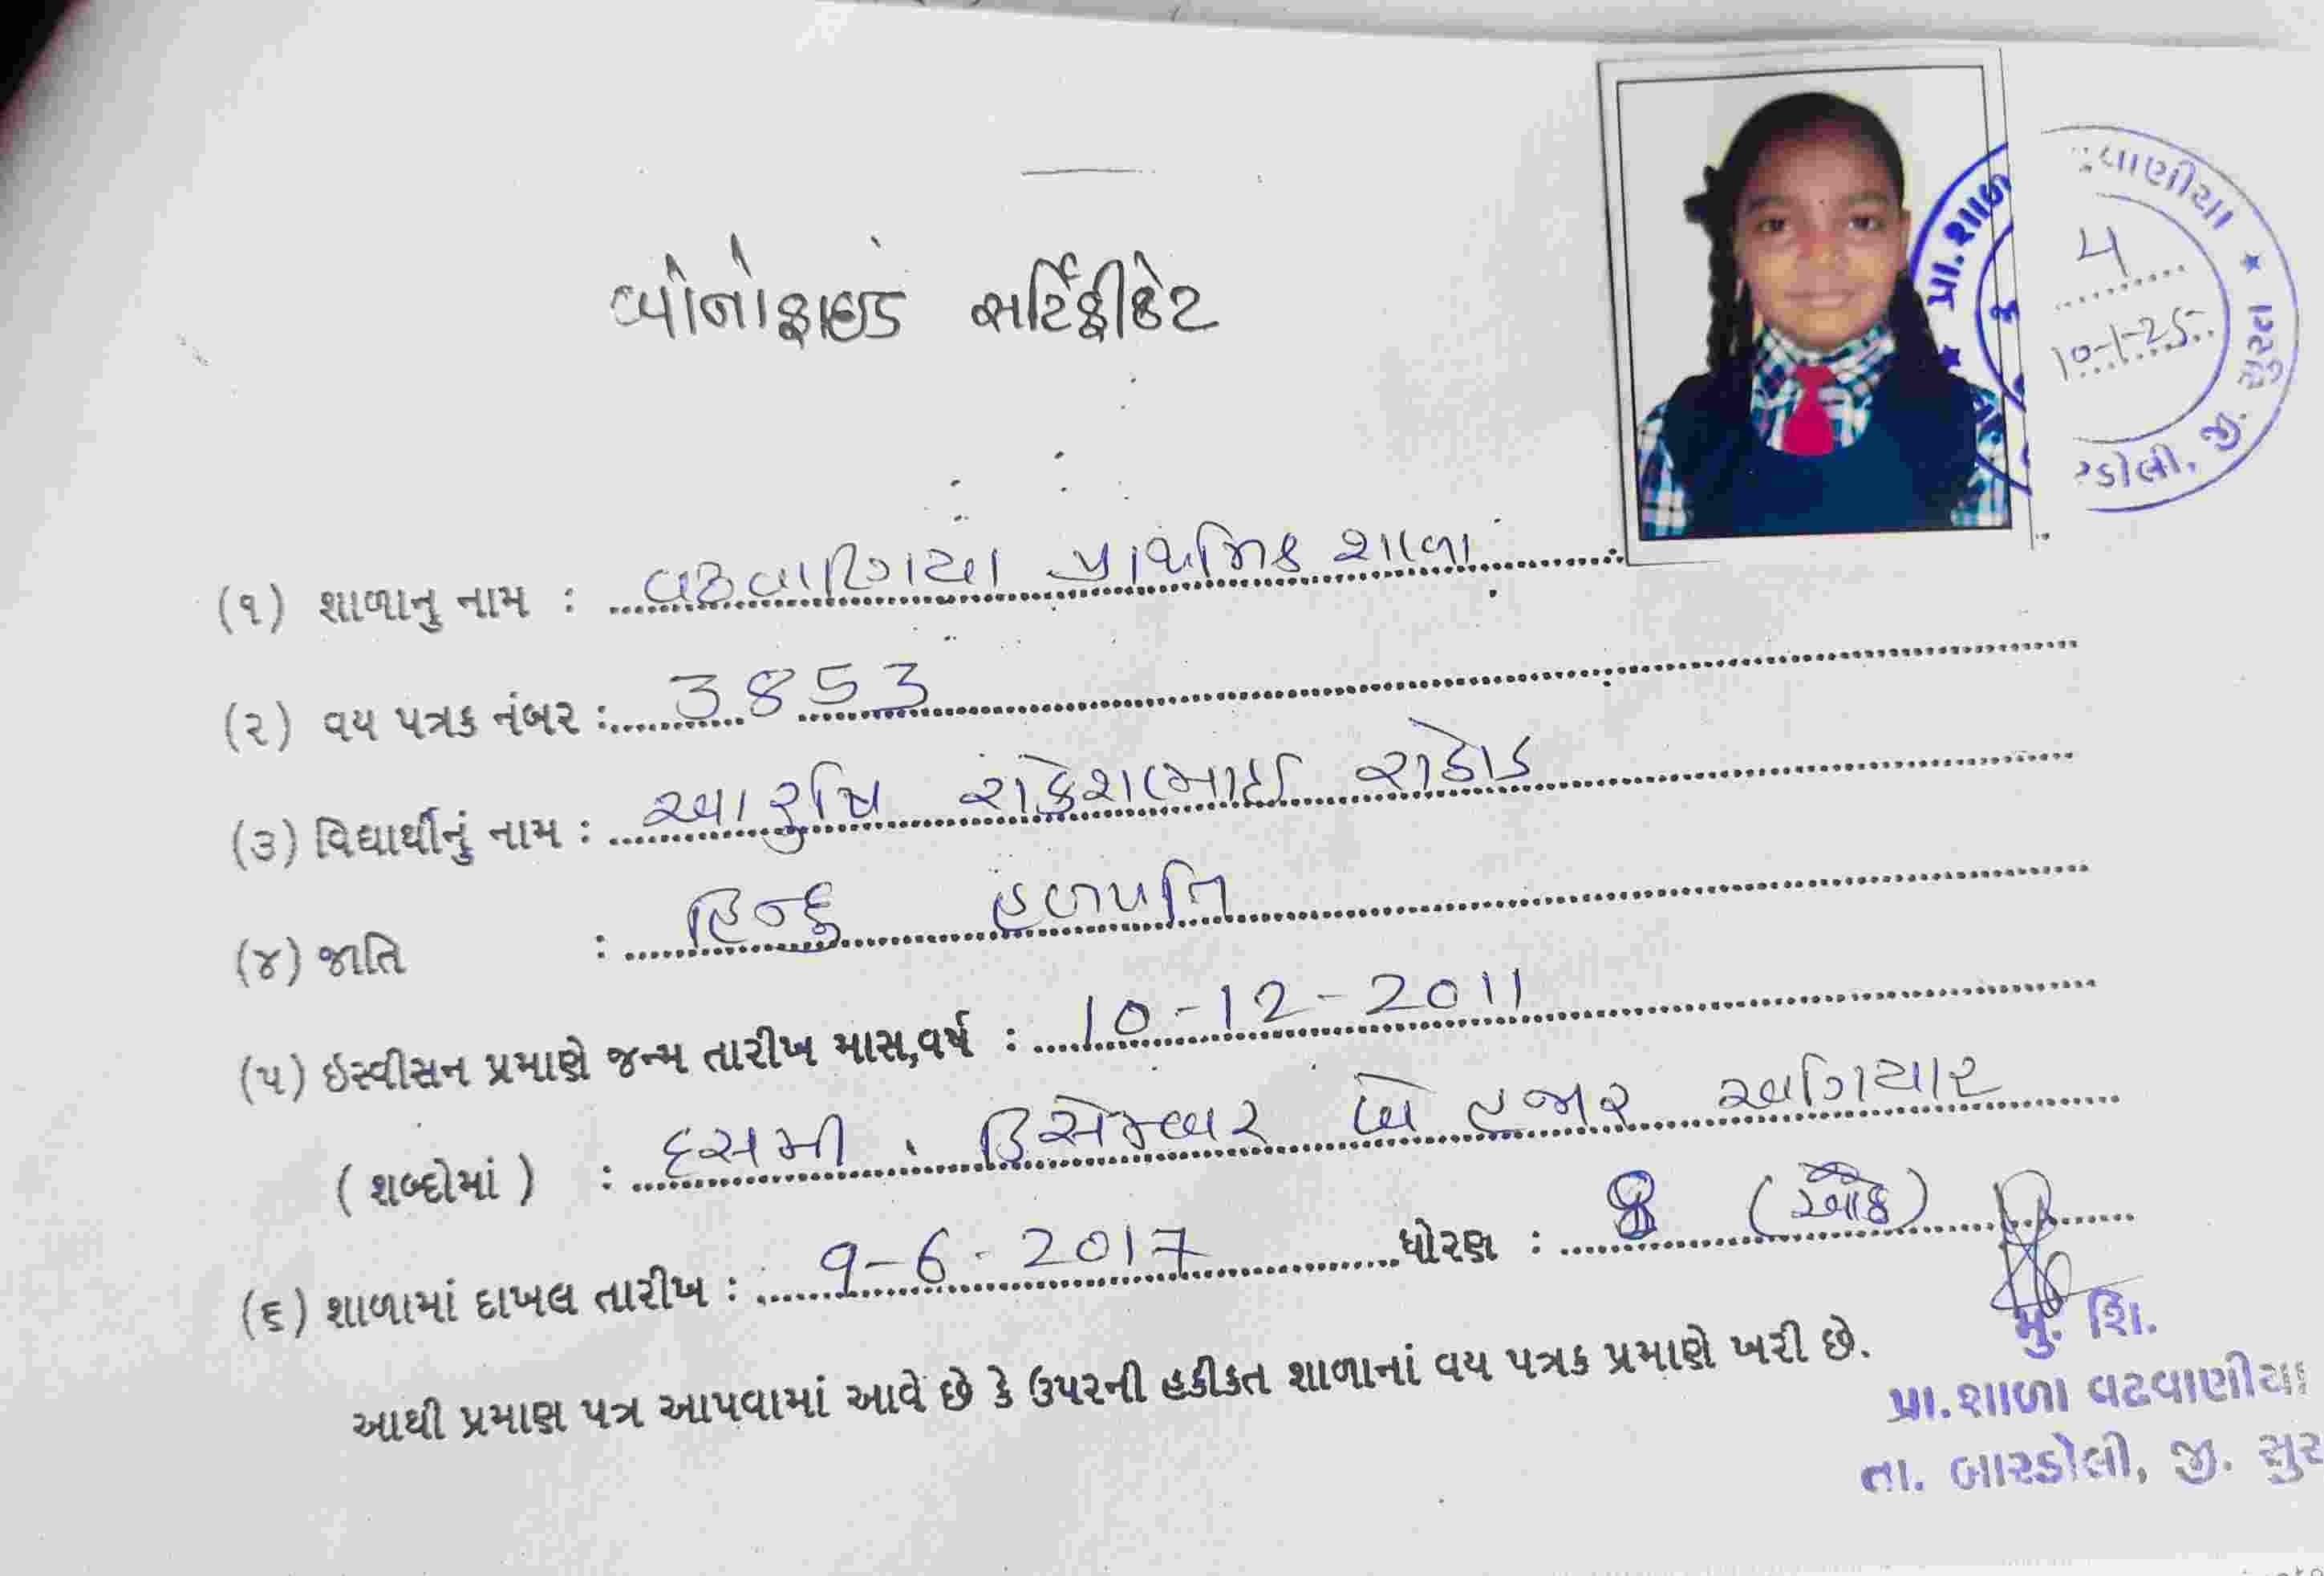 બોનોફાઇડ સર્ટિફીકેટ
પ્રા. શાળ
વાણીયા ★ સુરત
૫
10-1-25
રડોલી, જી.
(૧) શાળાનુ નામ : વઢવાણિયા પ્રાથમિક શાળા
(૨) વય પત્રક નંબર : 3853
(૩) વિદ્યાર્થીનું નામ : આરુષિ રાકેશભાઈ રાઠોડ
(૪) જાતિ : હિન્દુ હળપતિ
(૫) ઇસ્વીસન પ્રમાણે જન્મ તારીખ માસ,વર્ષ : 10-12-2011
( શબ્દોમાં ) : દસમી ડિસેમ્બર બે હજાર અગિયાર
(૬) શાળામાં દાખલ તારીખ : 9-6-2017 ધોરણ : 8
આથી પ્રમાણ પત્ર આપવામાં આવે છે કે ઉપરની હકીકત શાળાનાં વય પત્રક પ્રમાણે ખરી છે.
મુ. શિ.
પ્રા. શાળા વઢવાણીયા
તા. બારડોલી, જી. સુર